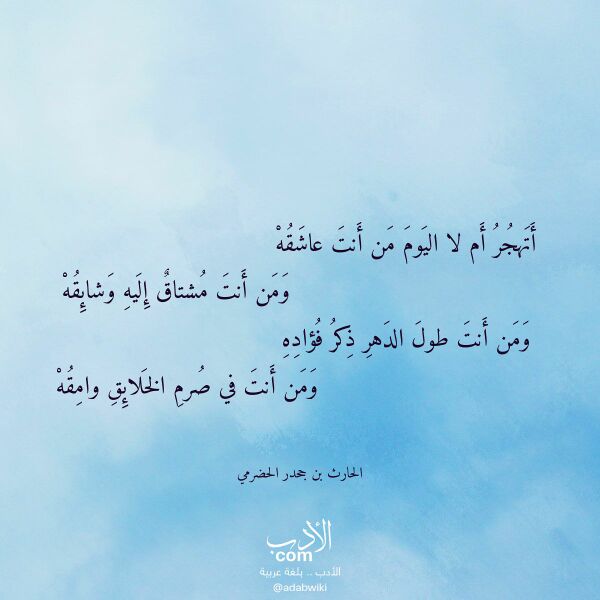 أَتَهجُرُ أَم لا اليَومَ مَن أَنتَ عاشَقُهْ
وَمَن أَنتَ مُشتاقٌ إِلَيهِ وَشائِقُهْ
وَمَن أَنتَ طولَ الدَهرِ ذِكرُ فُؤادِهِ
وَمَن أَنتَ في صُرمِ الخَلائِقِ وامِقُهْ
الحارث بن جحدر الحضرمي
الأدب
com
الأدب .. بلغة عربية
@adabwiki